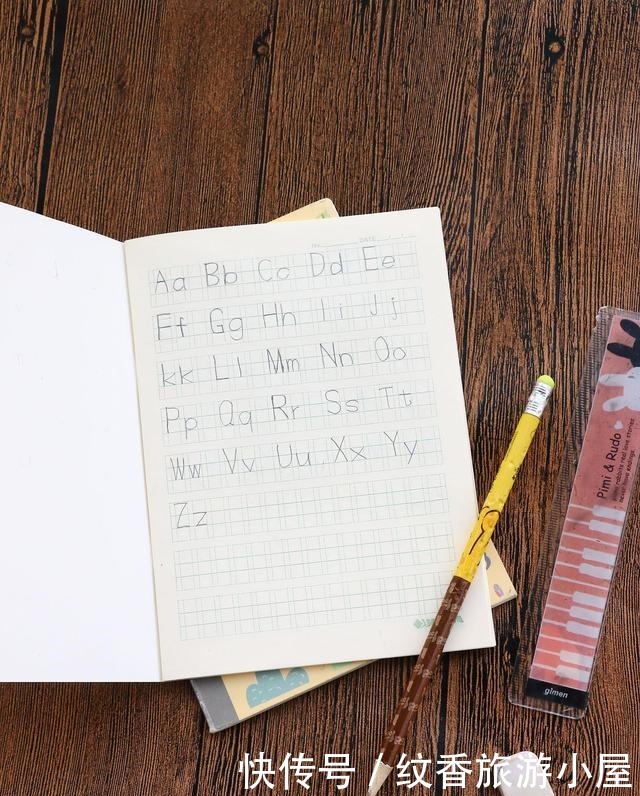 Aa Bb Cc Dd Ee
Ff Gg Hh Ii Jj
kk Ll Mm Nn Oo
Pp Qq Rr Ss Tt
Ww Vv Uu Xx Yy
Zz
Pimi & Rudo
glmen
快传号 / 纹香旅游小屋